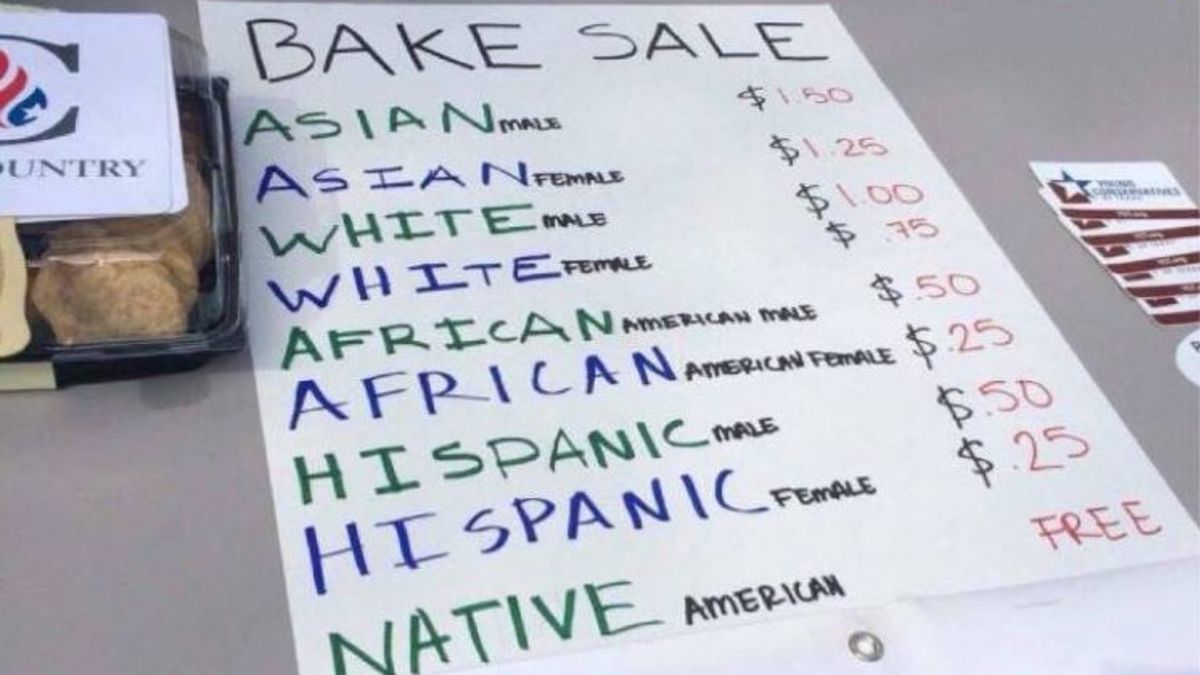 BAKE SALE
ASIAN MALE $1.50
ASIAN FEMALE $1.25
WHITE MALE $1.00
WHITE FEMALE $.75
AFRICAN AMERICAN MALE $.50
AFRICAN AMERICAN FEMALE $.25
HISPANIC MALE $.50
HISPANIC FEMALE $.25
NATIVE AMERICAN FREE
C
OUNTRY
YOUNG
CONSERVATIVES